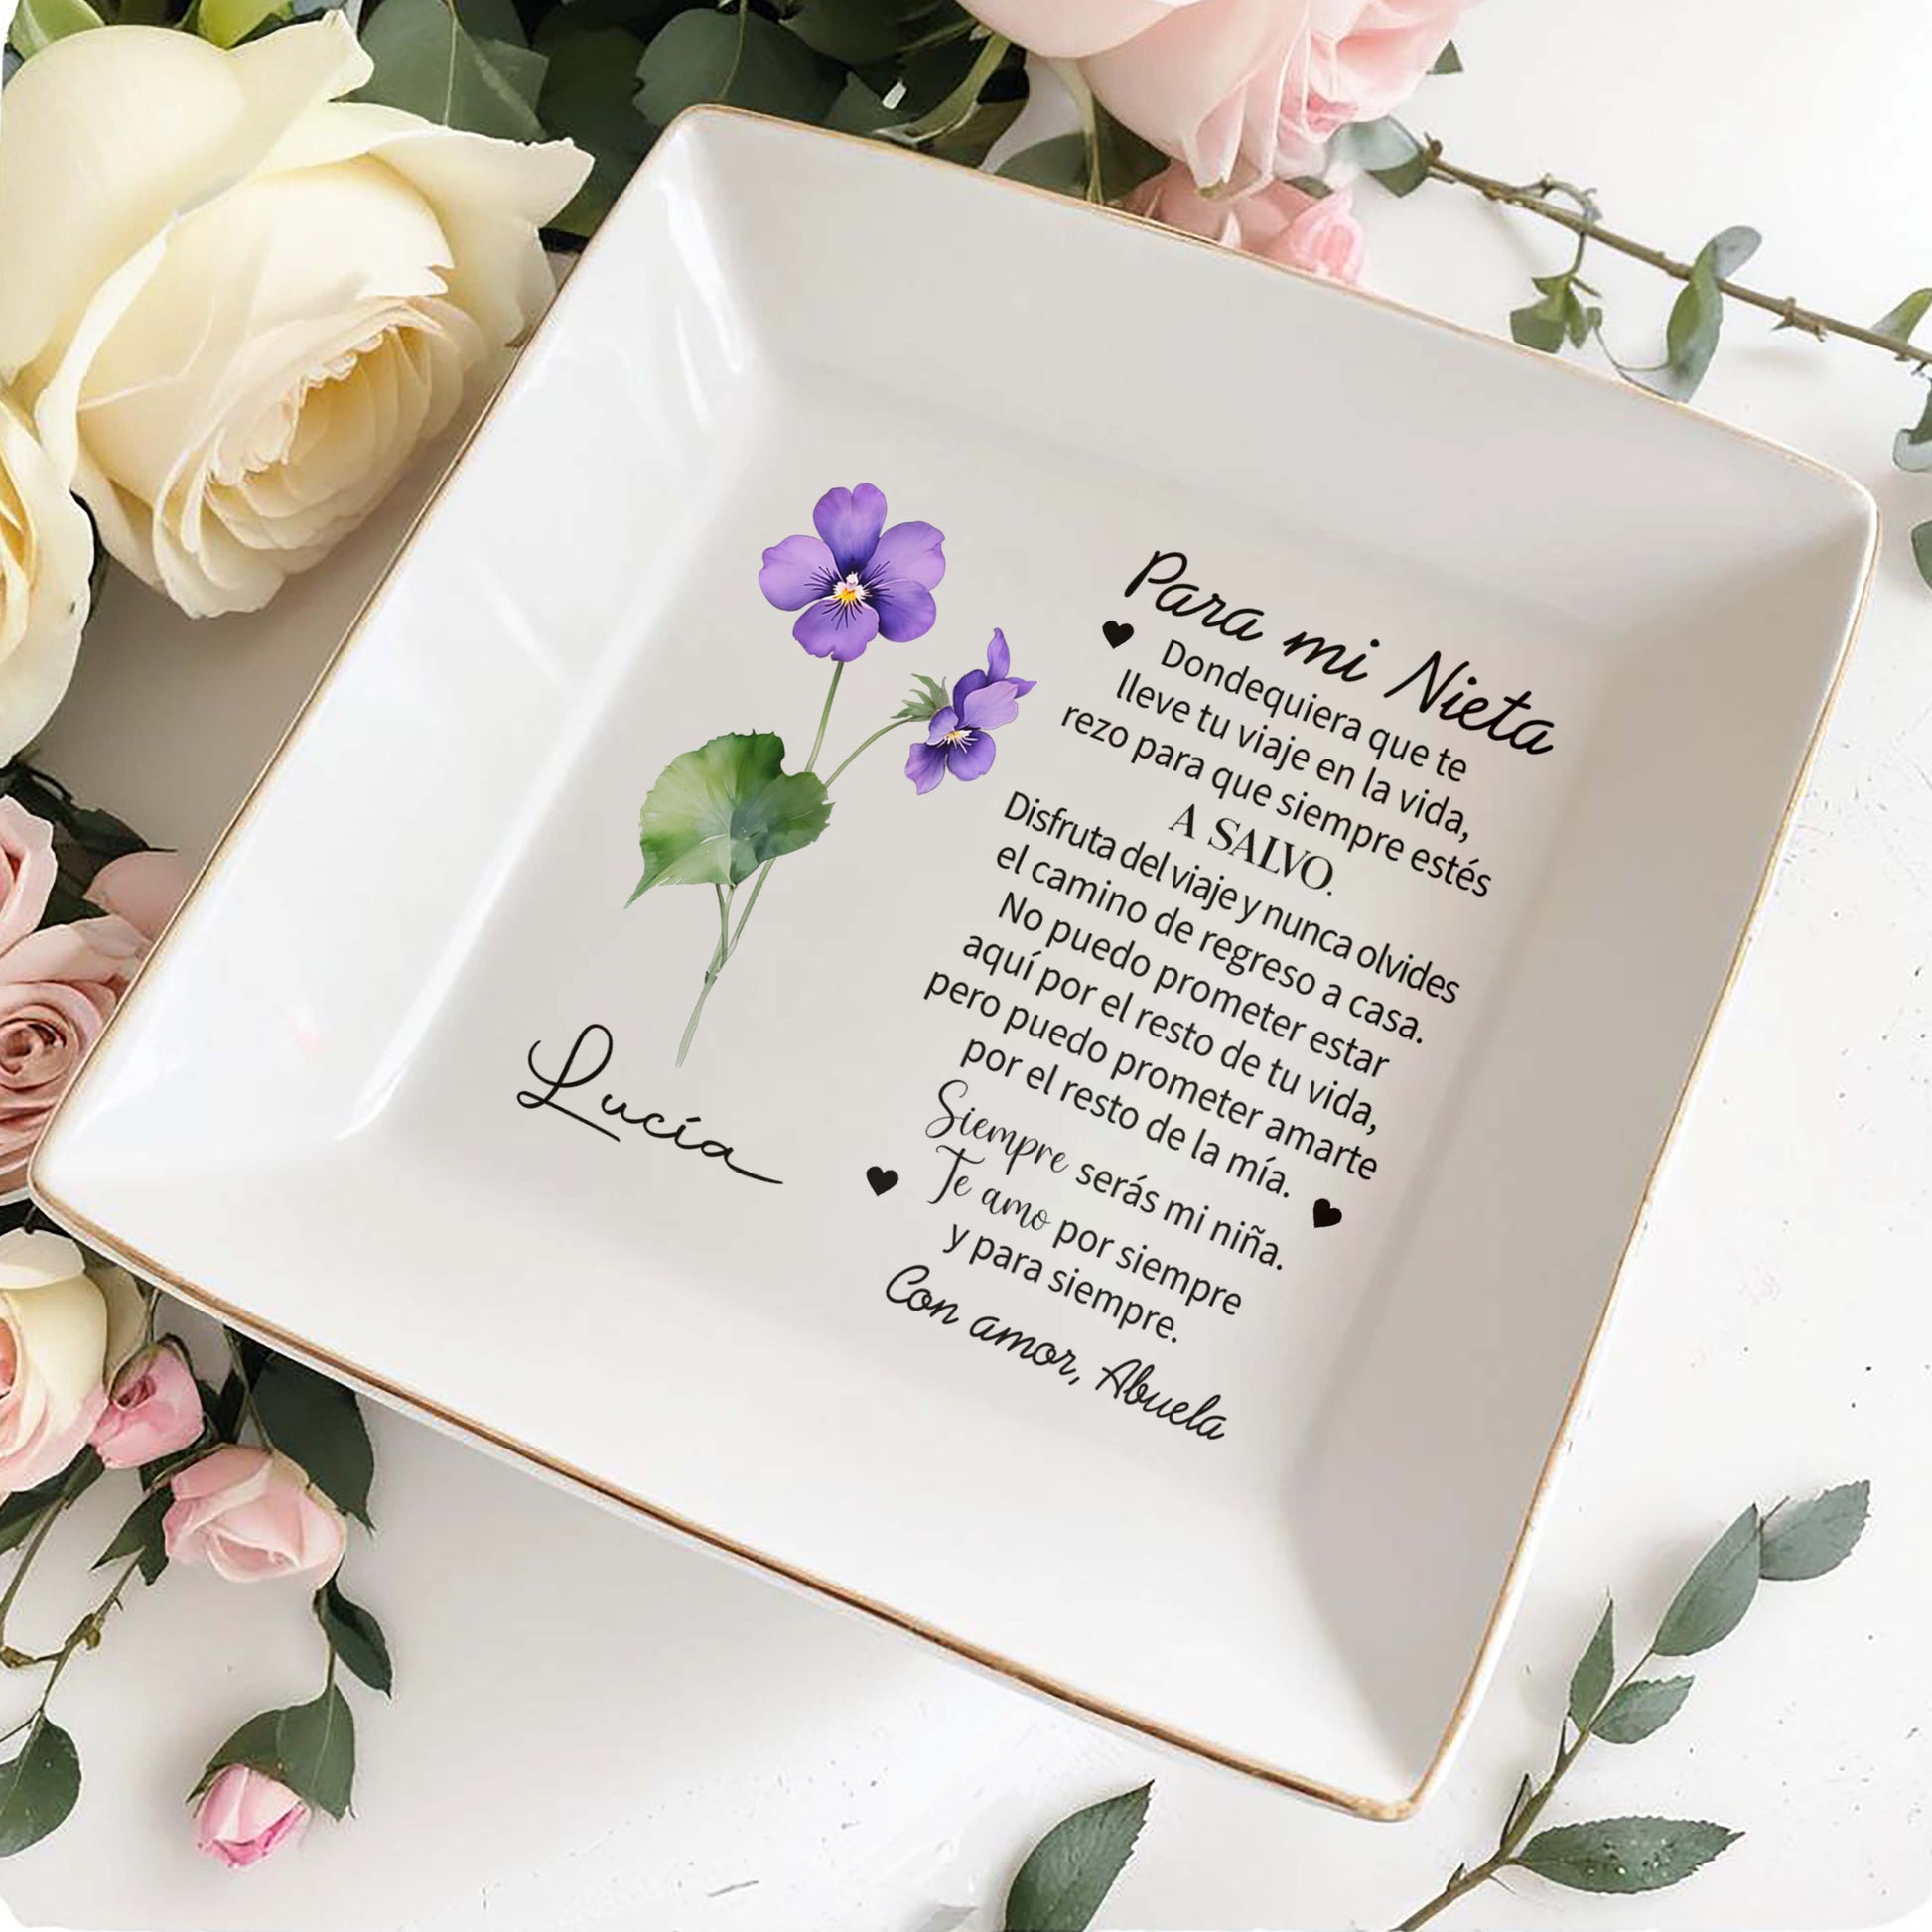 Para mi Nieta
Dondequiera que te
lleve tu viaje en la vida,
rezo para que siempre estés
A SALVO.
Disfruta del viaje y nunca olvides
el camino de regreso a casa.
No puedo prometer estar
aquí por el resto de tu vida,
pero puedo prometer amarte
por el resto de la mía.
Siempre serás mi niña.
Te amo por siempre
y para siempre.
Con amor, Abuela
Lucía